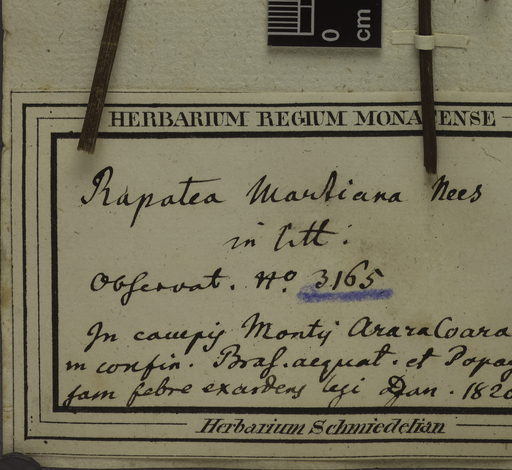 0
cm
HERBARIUM REGIUM MONACENSE
Rapatea Martiana Nees
in litt:
Observat. No 3165
In campis Montis AraraCoara
in confin. Bras. aequat. et Popay
jam febre exardens legi Jan. 1820
Herbarium Schmiedelian